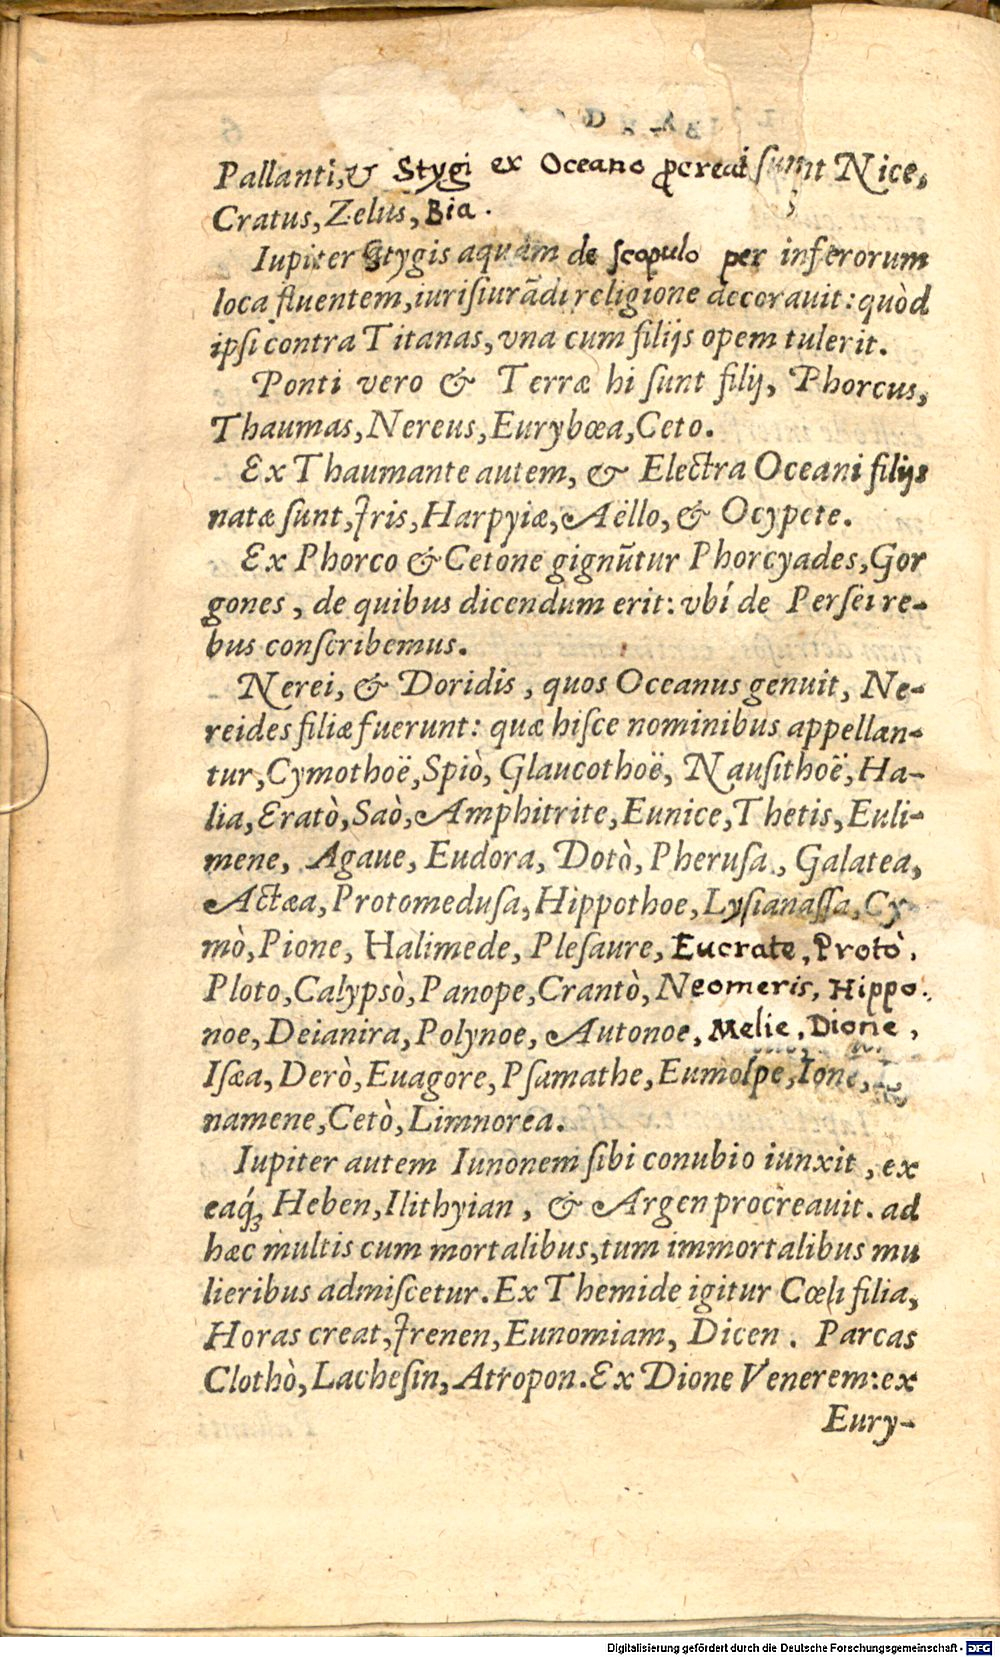 Pallanti, & Stygi ex Oceano ꝓcreati sunt Nice,
Cratus, Zelus, Bia.
Iupiter Stygis aquam de ſcopulo per inferorum
loca fluentem, iuriſiurãdi religione decorauit: quòd
ipſi contra Titanas, vna cum filijs opem tulerit.
Ponti vero & Terræ hi ſunt filij, Phorcus,
Thaumas, Nereus, Eurybœa, Ceto.
Ex Thaumante autem, & Electra Oceani filijs
natæ ſunt, Iris, Harpyiæ, Aëllo, & Ocypete.
Ex Phorco & Cetone gignũtur Phorcyades, Gor
gones, de quibus dicendum erit: vbi de Perſei re-
bus conſcribemus.
Nerei, & Doridis, quos Oceanus genuit, Ne-
reides filiæ fuerunt: quæ hiſce nominibus appellan-
tur, Cymothoë, Spiò, Glaucothoë, Nauſithoë, Ha-
lia, Eratò, Saò, Amphitrite, Eunice, Thetis, Euli-
mene, Agaue, Eudora, Dotò, Pheruſa, Galatea,
Actæa, Protomeduſa, Hippothoe, Lyſianaſſa, Cy-
mò, Pione, Halimede, Pleſaure, Eucrate, Protò,
Ploto, Calypsò, Panope, Crantò, Neomeris, Hippo.
noe, Deianira, Polynoe, Autonoe, Melie, Dione,
Iſæa, Derò, Euagore, Pſamathe, Eumolpe, Ione,
namene, Cetò, Limnorea.
Iupiter autem Iunonem ſibi conubio iunxit, ex
eaq́ꝫ Heben, Ilithyian, & Argen procreauit. ad
hæc multis cum mortalibus, tum immortalibus mu
lieribus admiſcetur. Ex Themide igitur Cœli filia,
Horas creat, Irenen, Eunomiam, Dicen. Parcas
Clothò, Lacheſin, Atropon. Ex Dione Venerem: ex
Eury-
Digitalisierung gefördert durch die Deutsche Forschungsgemeinschaft - DFG